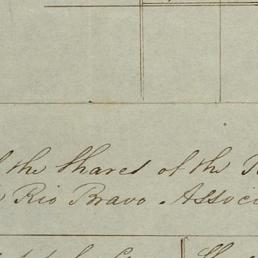 the Shares of the
Rio Bravo Associ